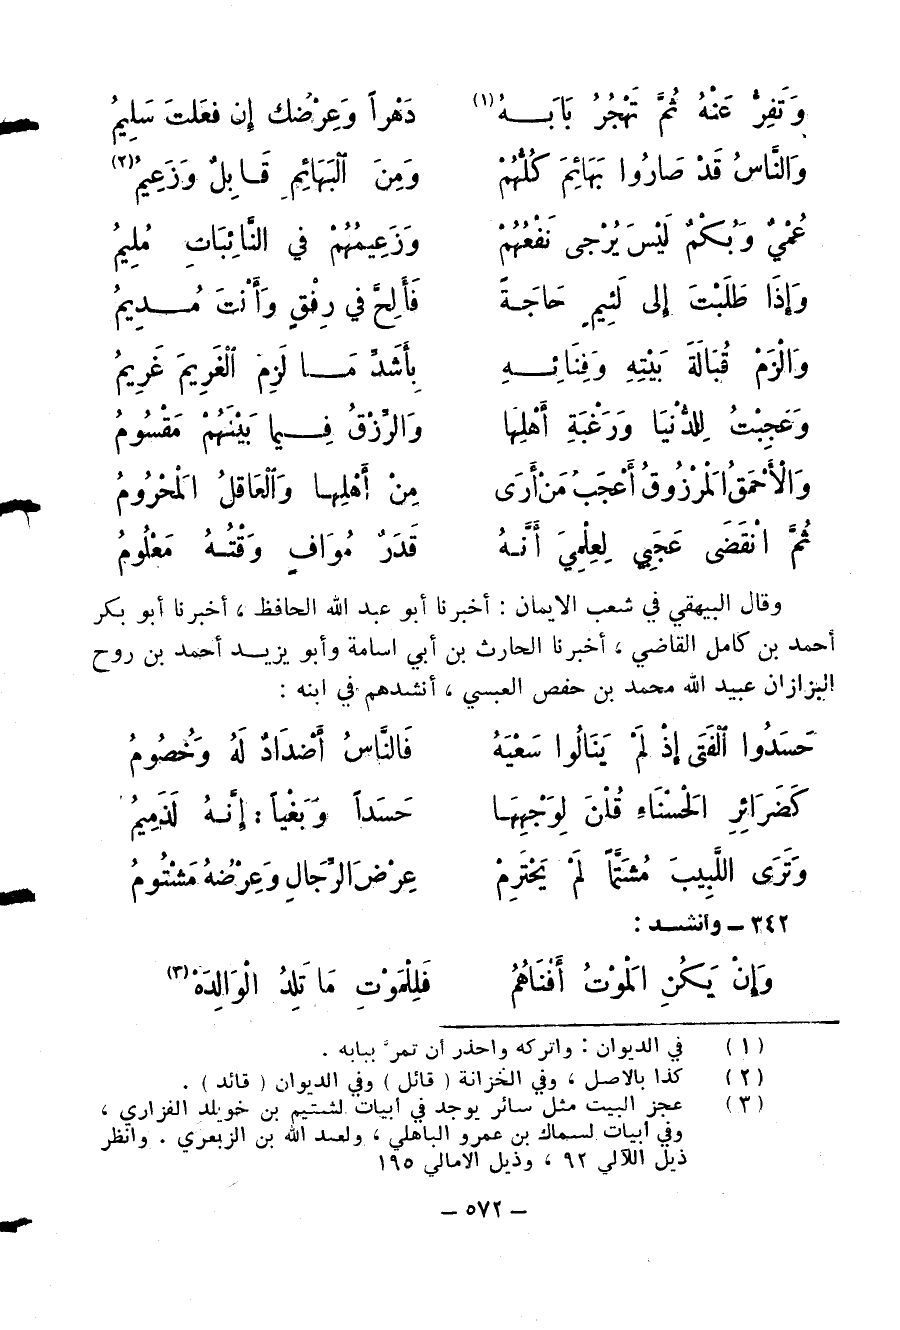 وَتَفِرُّ عَنْهُ ثُمَّ تَهْجُرُ بَابَـــهُ(١) دَهْراً وَعِرْضُك إِن فعَلتَ سَلِيمُ
وَالنَّاسُ قَدْ صَارُوا بَهَائِمَ كُلُّهُمْ وَمِنَ ٱلبَهَائِمِ قَـابِلٌ وَزَعِيمُ(٢)
عُمْيٌ وَبُكمٌ لَيْسَ يُرْجى نَفْعُهُمْ وَزَعِيمُهُمْ فِي النَّائِبَاتِ مُلِيمُ
وَإِذَا طَلَبْتَ إِلى لَئِيمٍ حَاجَـةً فَأَلِحَّ فِي رِفْقٍ وَأَنْتَ مُـــدِيمُ
وَالْزَمْ قُبَالَةَ بَيْتِهِ وَفِنَائِـــهِ بِأَشَدِّ مَـــا لَزِمَ ٱلغَرِيمَ غَرِيمُ
وَعَجِبْتُ لِلدُّنْيَا وَرَغْبَةِ أَهْلِهَا وَالرِّزْقُ فِـــيما بَيْنَهُمْ مَقْسُومُ
وَالْأَحْمَقُ المَرْزُوقُ أَعْجَبُ مَنْ أَرَى مِنْ أَهْلِهـا وَٱلعَاقلُ المَحْرُومُ
ثُمَّ انْقَضَى عَجَبِي لِعِلْمِيَ أَنَّـهُ قَدَرٌ مُوَافٍ وَقْتُـهُ مَعْلُومُ
وقال البيهقي في شعب الايمان : أخبرنا أبو عبد الله الحافظ ، أخبرنا أبو بكر
أحمد بن كامل القاضي ، أخبرنا الحارث بن أبي اسامة وأبو يزيــد أحمد بن روح
البزازان عبيد الله محمد بن حفص العبسي ، أنشدهم في ابنه :
حَسَدُوا ٱلفَتَى إِذْ لَمْ يَنَالُوا سَعْيَهُ فَالنَّاسُ أَضْدَادٌ لَهُ وَخُصُومُ
كَضَرَائِرِ الحْسْنَاءِ قُلْنَ لِوَجْهِهَـا حَسَداً وَبَغْياً : إِنَّـهُ لَذَمِيمُ
وَتَرَى اللَّبِيبَ مُشَتَّماً لَمْ يَحْتَرِمْ عِرْضَ الرِّجَالِ وَعِرْضُهُ مَشْتُومُ
٣٤٢ – وأنشــد :
وَإِنْ يَكُنِ المَوْتُ أَفْنَاهُمُ فَلِلْمَوْتِ مَا تَلِدُ الْوَالِدَهْ(٣)
(١) في الديوان : واتركه واحذر أن تمرَّ ببابه .
(٢) كذا بالاصل ، وفي الخزانة ( قائل ) وفي الديوان ( قائد ) .
(٣) عجز البيت مثل سائر يوجد في أبيات لشتيم بن خويلد الفزاري ،
وفي أبيات لسماك بن عمرو الباهلي ، ولعبد الله بن الزبعري . وانظر
ذيل اللآلي ٩٢ ، وذيل الامالي ١٩٥
– ٥٧٢ –